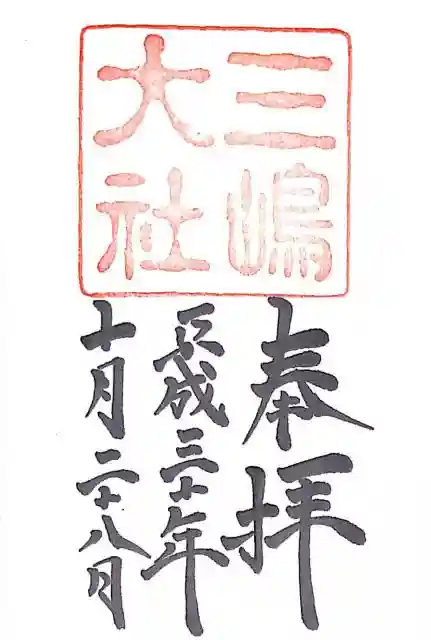 三嶋
大社
奉拝
平成三十年
十月二十八日